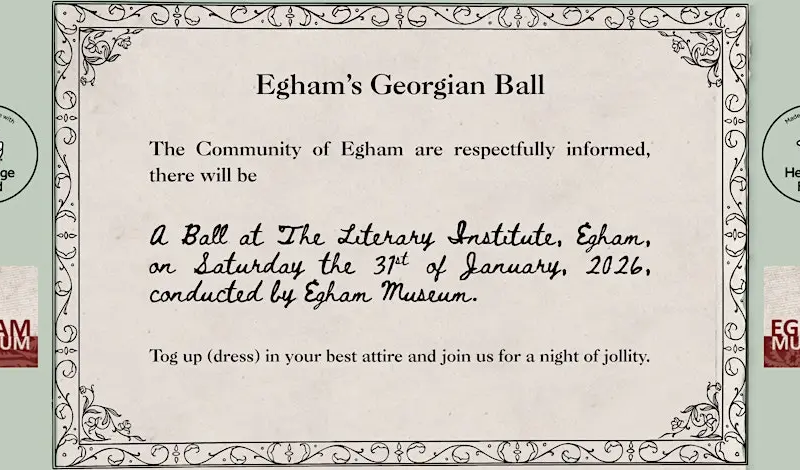 Egham's Georgian Ball
The Community of Egham are respectfully informed,
there will be
A Ball at The Literary Institute, Egham,
on Saturday the 31st of January, 2026,
conducted by Egham Museum.
Tog up (dress) in your best attire and join us for a night of jollity.